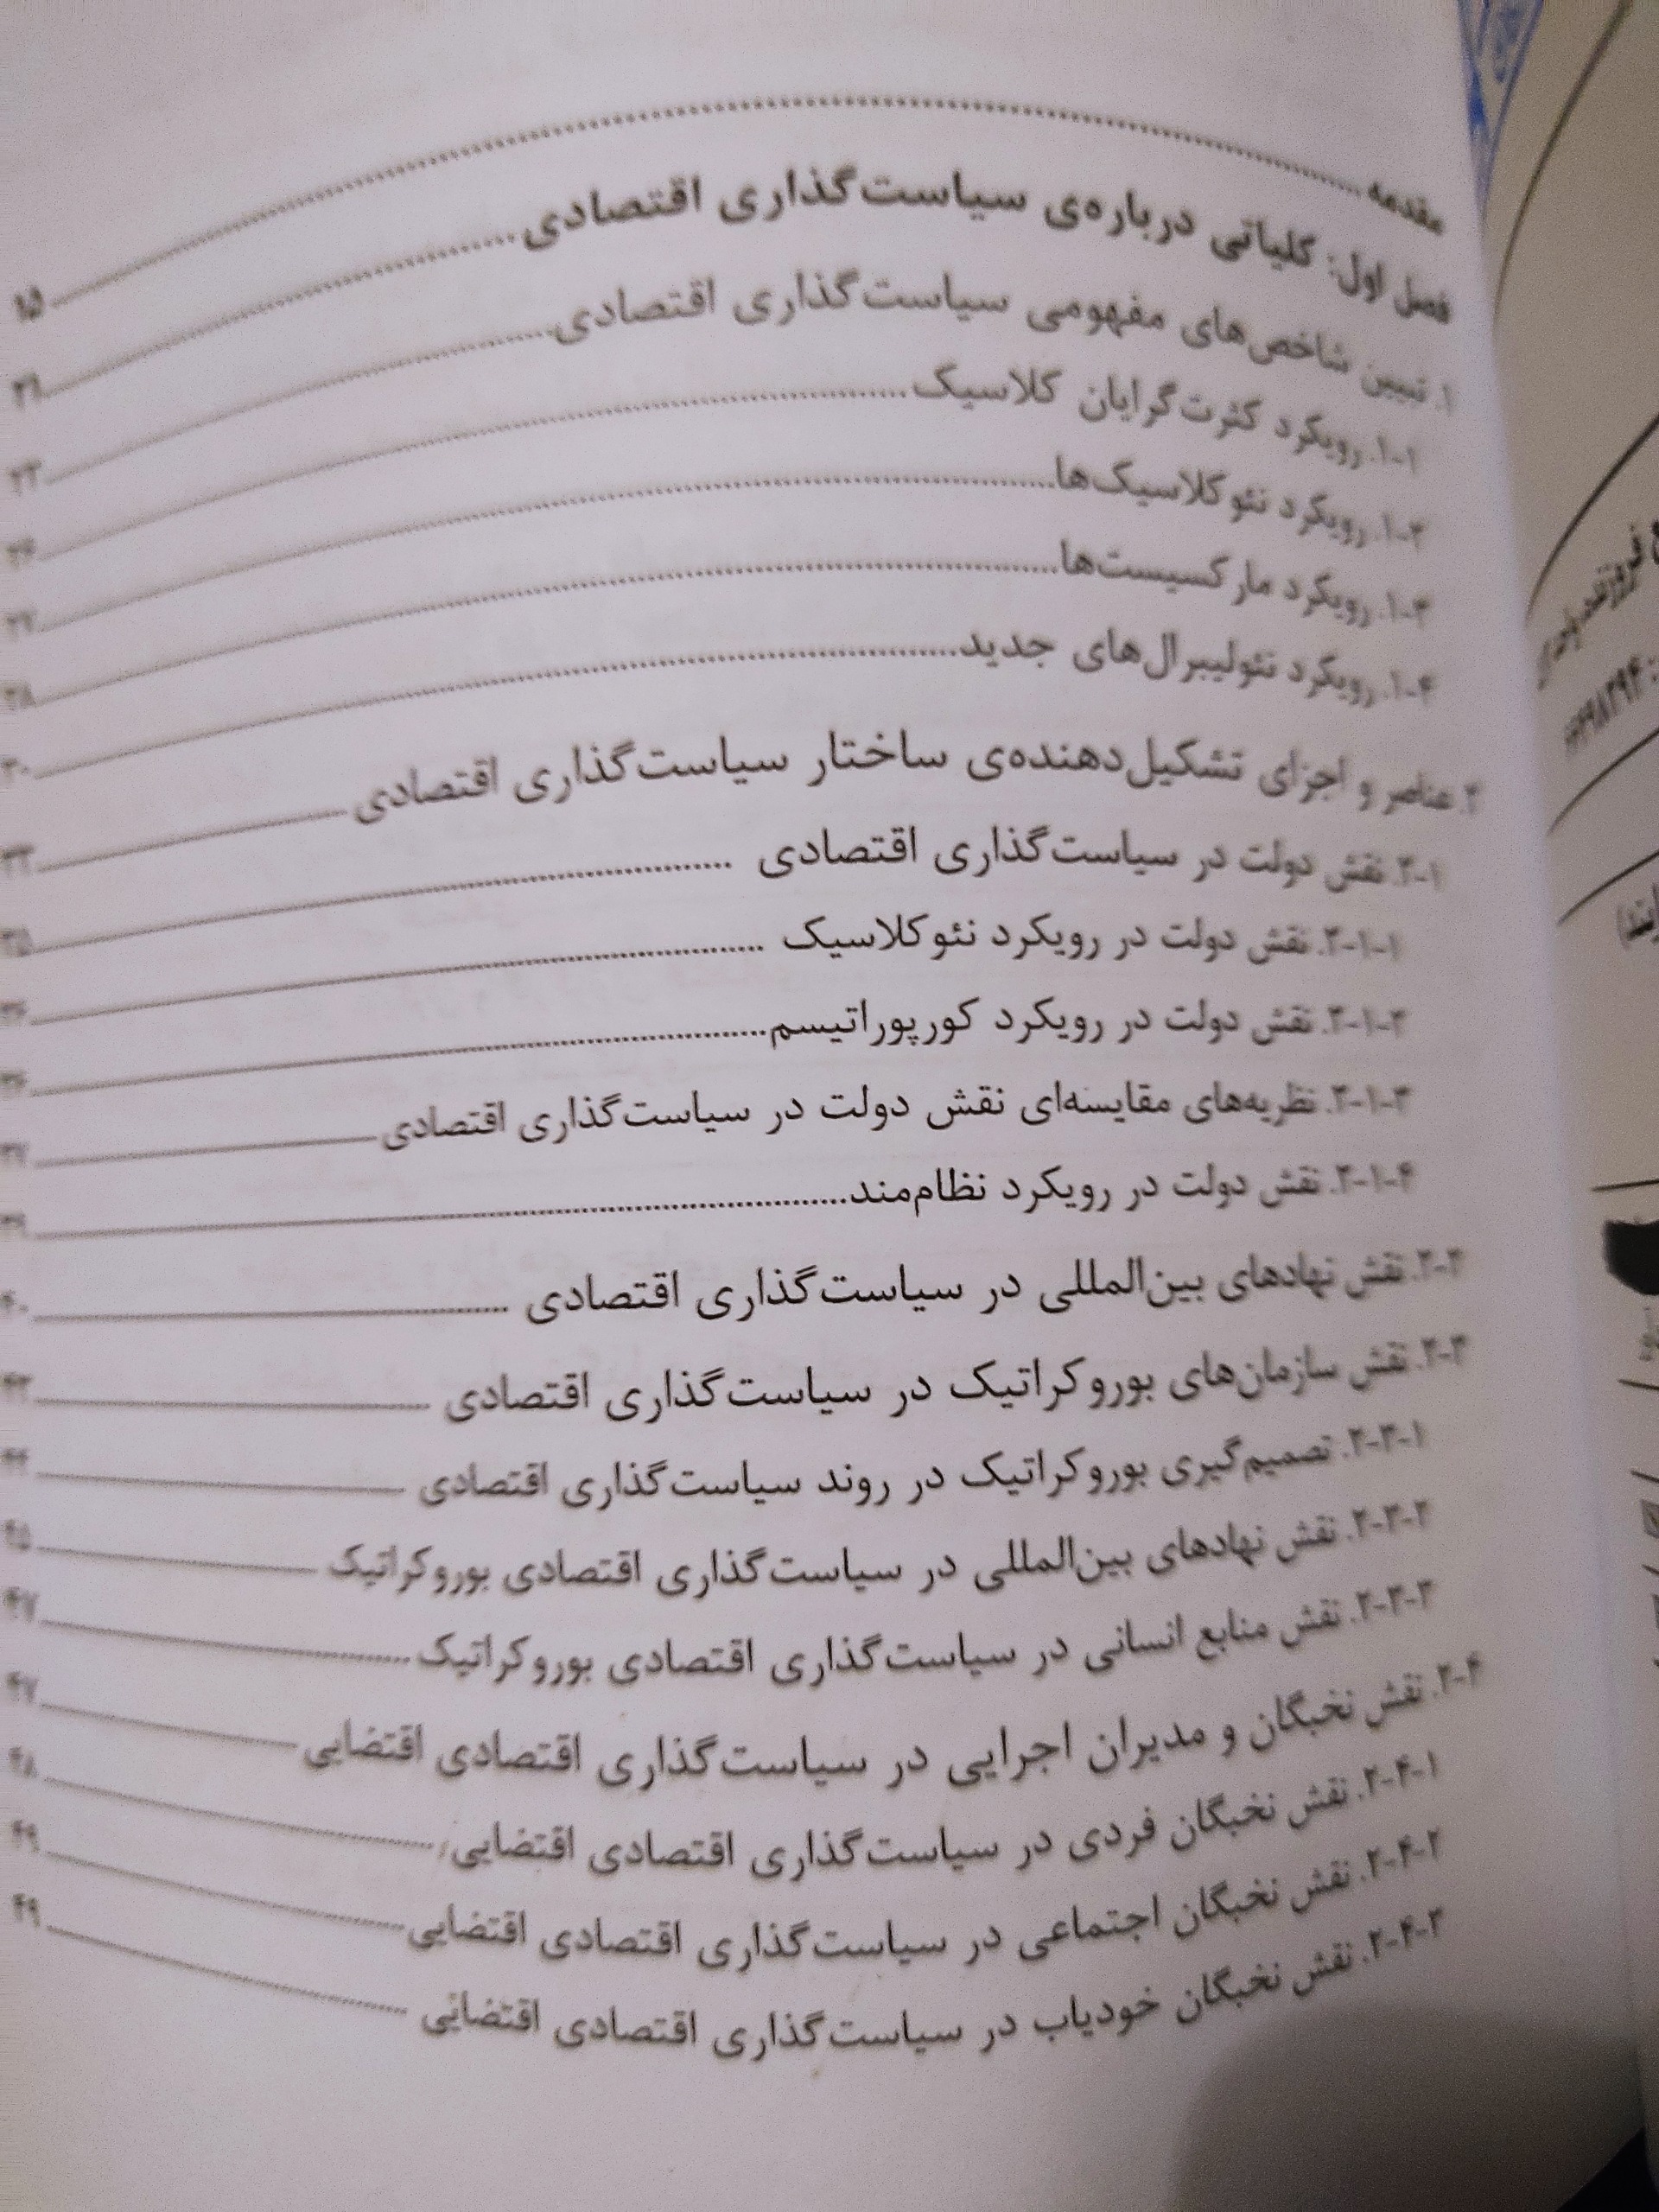 مقدمه ........ ۱۵
فصل اول: کلیاتی درباره‌ی سیاست‌گذاری اقتصادی ........ ۲۱
۱. تبیین شاخص‌های مفهومی سیاست‌گذاری اقتصادی ........ ۲۳
۱-۱. رویکرد کثرت‌گرایان کلاسیک ........ ۲۶
۱-۲. رویکرد نئوکلاسیک‌ها ........ ۲۷
۱-۳. رویکرد مارکسیست‌ها ........ ۲۸
۱-۴. رویکرد نئولیبرال‌های جدید ........ ۳۰
۲. عناصر و اجزای تشکیل‌دهنده‌ی ساختار سیاست‌گذاری اقتصادی ........ ۳۳
۲-۱. نقش دولت در سیاست‌گذاری اقتصادی ........ ۳۵
۲-۱-۱. نقش دولت در رویکرد نئوکلاسیک ........ ۳۶
۲-۱-۲. نقش دولت در رویکرد کورپوراتیسم ........ ۳۶
۲-۱-۳. نظریه‌های مقایسه‌ای نقش دولت در سیاست‌گذاری اقتصادی ........ ۳۷
۲-۱-۴. نقش دولت در رویکرد نظام‌مند ........ ۳۹
۲-۲. نقش نهادهای بین‌المللی در سیاست‌گذاری اقتصادی ........ ۴۰
۲-۳. نقش سازمان‌های بوروکراتیک در سیاست‌گذاری اقتصادی ........ ۴۳
۲-۳-۱. تصمیم‌گیری بوروکراتیک در روند سیاست‌گذاری اقتصادی ........ ۴۴
۲-۳-۲. نقش نهادهای بین‌المللی در سیاست‌گذاری اقتصادی بوروکراتیک ........ ۴۵
۲-۳-۳. نقش منابع انسانی در سیاست‌گذاری اقتصادی بوروکراتیک ........ ۴۷
۲-۴. نقش نخبگان و مدیران اجرایی در سیاست‌گذاری اقتصادی اقتضایی ........ ۴۷
۲-۴-۱. نقش نخبگان فردی در سیاست‌گذاری اقتصادی اقتضایی ........ ۴۸
۲-۴-۲. نقش نخبگان اجتماعی در سیاست‌گذاری اقتصادی اقتضایی ........ ۴۹
۲-۴-۳. نقش نخبگان خودیاب در سیاست‌گذاری اقتصادی اقتضائی ........ ۴۹